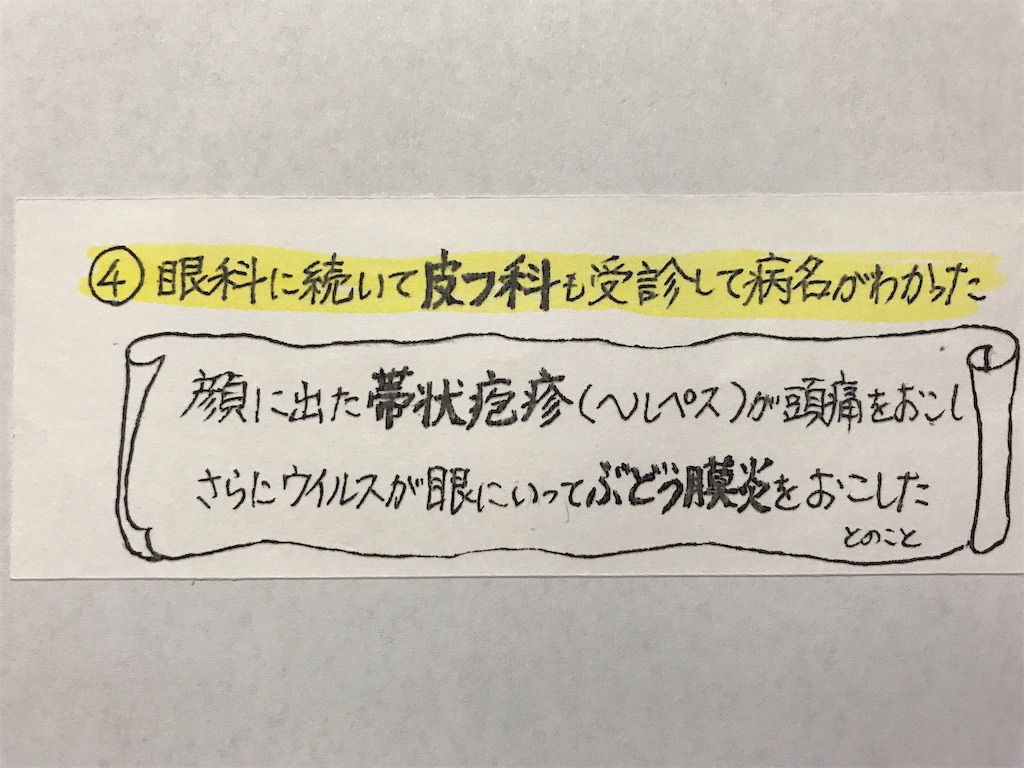 ④ 眼科に続いて皮フ科も受診して病名がわかった
顔に出た帯状疱疹(ヘルペス)が頭痛をおこし
さらにウイルスが眼にいってぶどう膜炎をおこした
とのこと